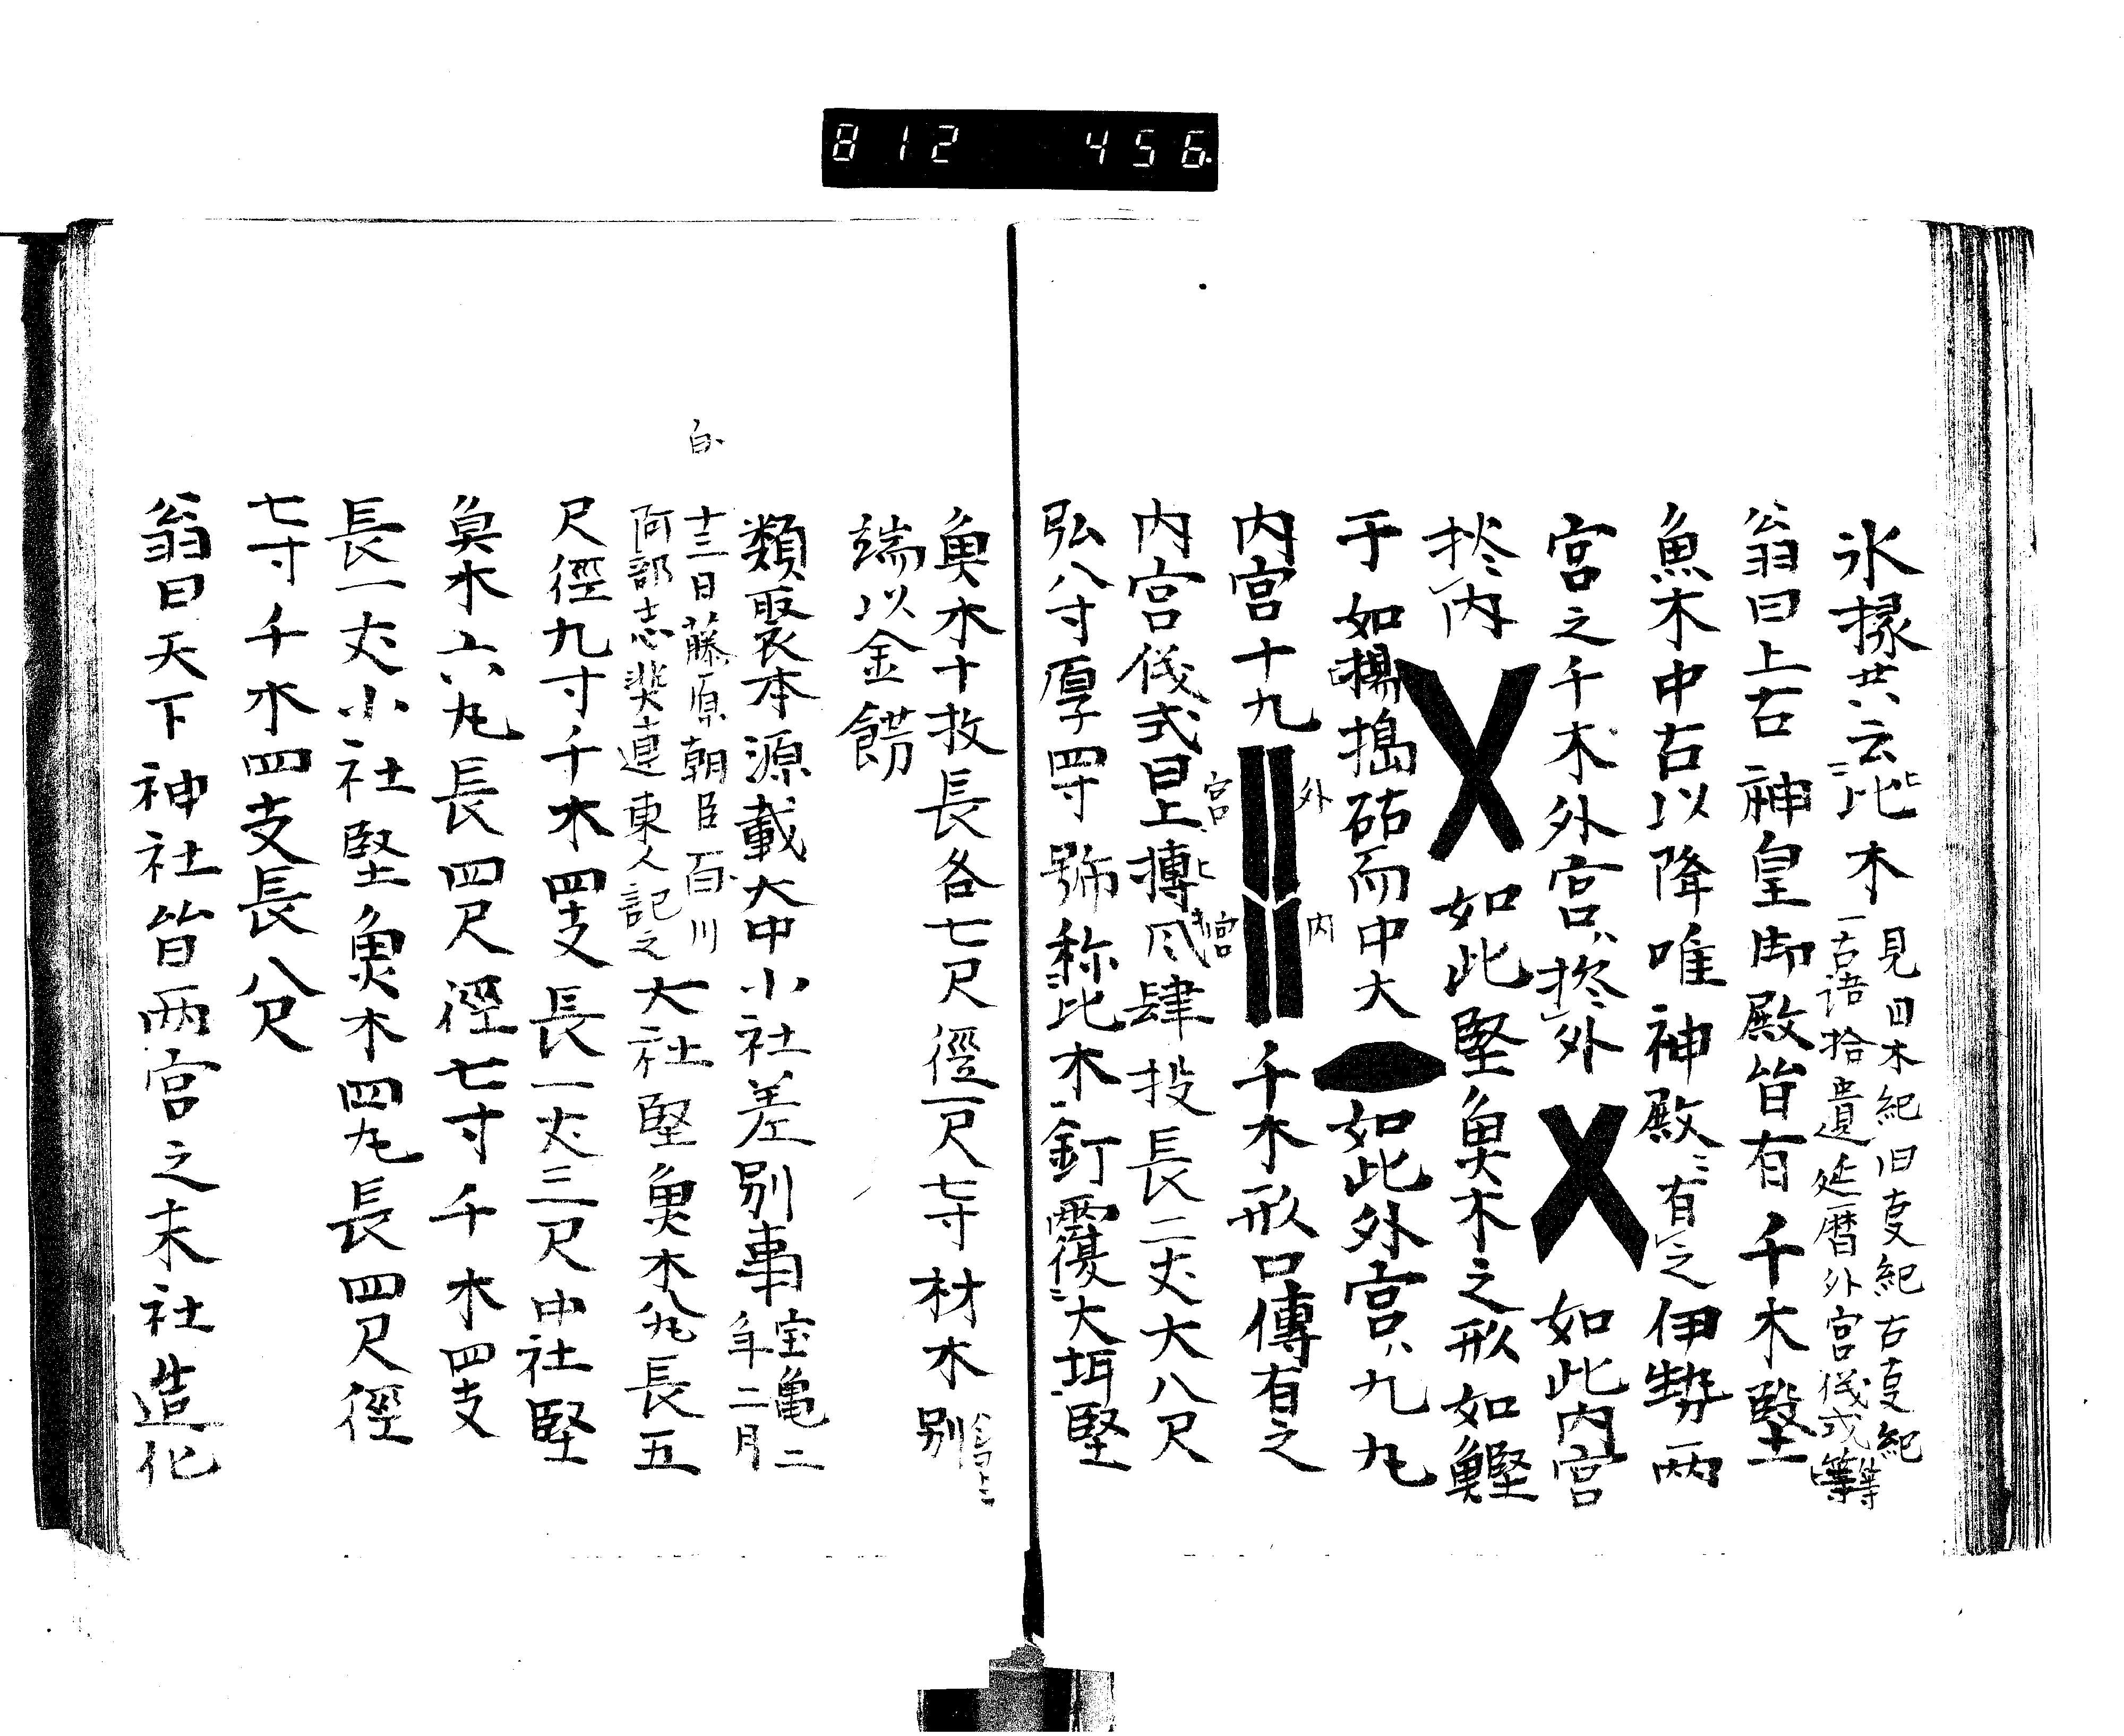 812 456
氷椽共云比木 見日木紀旧事紀古事紀等
古語拾遺延暦外宮儀式等
翁曰上古神皇御殿皆有千木堅
魚木中古以降唯神殿ニ有之伊勢両
宮之千木外宮ハ捴外 如此内宮
捴内 如此堅魚木之形如鰹
于如擣砧而中大 如此外宮ハ九丸
内宮十丸 外 内 千木形口傳有之
内宮儀式曰上摶風肆投長二丈大八尺
弘八寸厚四寸號称比木釘覆大堅
魚木十枚長各七尺徑一尺七寸材木別
端以金餝
類聚本源載大中小社差別事 宝亀二年二月
十三日藤原朝臣百川
阿部志斐連東人記之 大社堅魚木八丸長五
尺徑九寸千木四支長一丈三尺中社堅
魚木六丸長四尺徑七寸千木四支
長一丈小社堅魚木四丸長四尺徑
七寸千木四支長八尺
翁曰天下神社皆両宮之末社造化